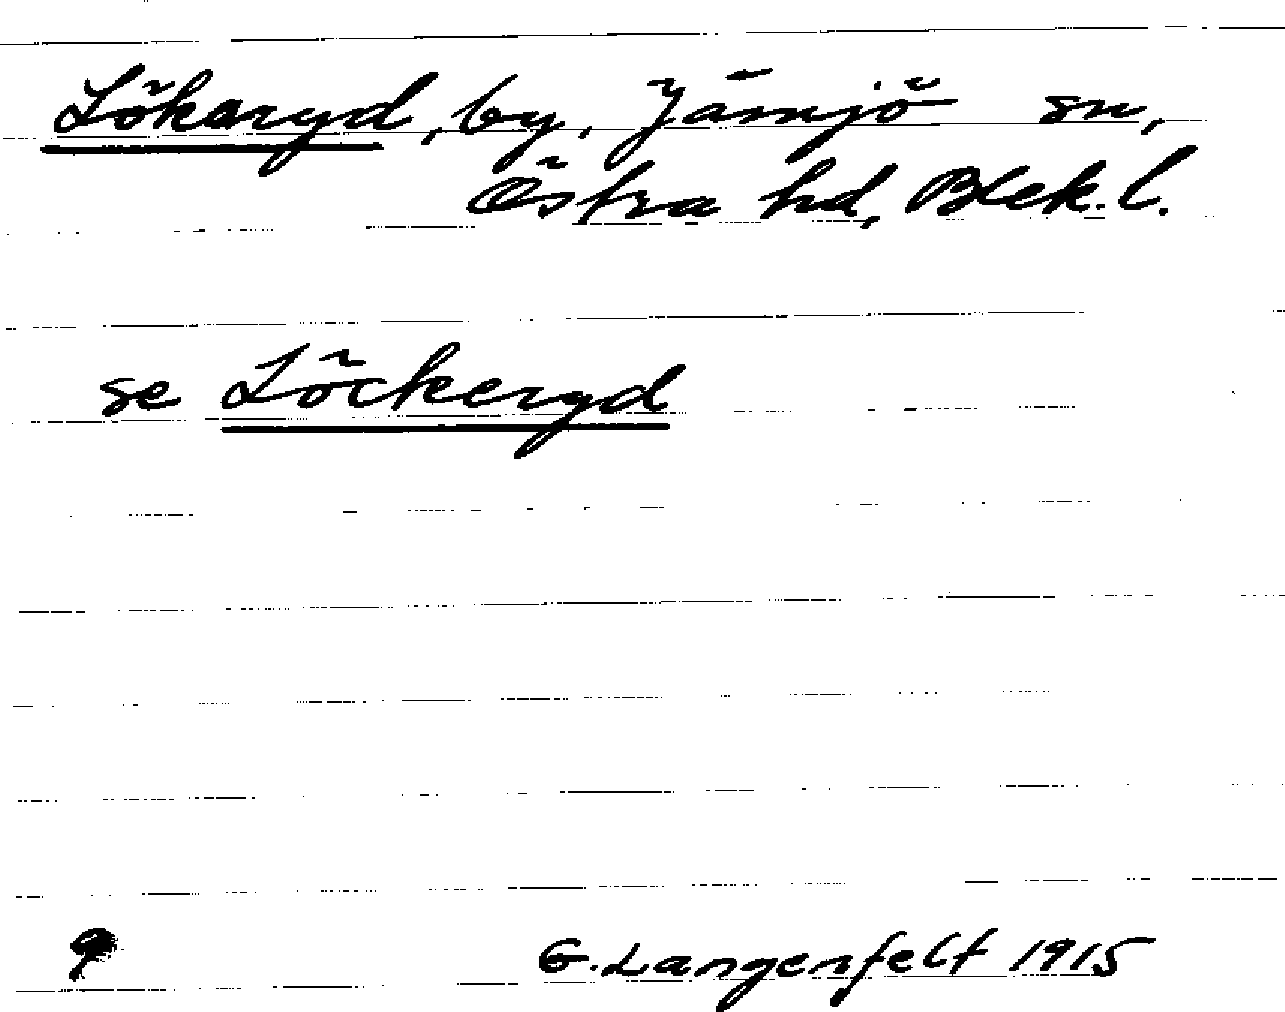 Lökaryd, by, Jämjö sn,
Östra hd, Blek. l.
se Löckeryd
9 G. Langenfelt 1915